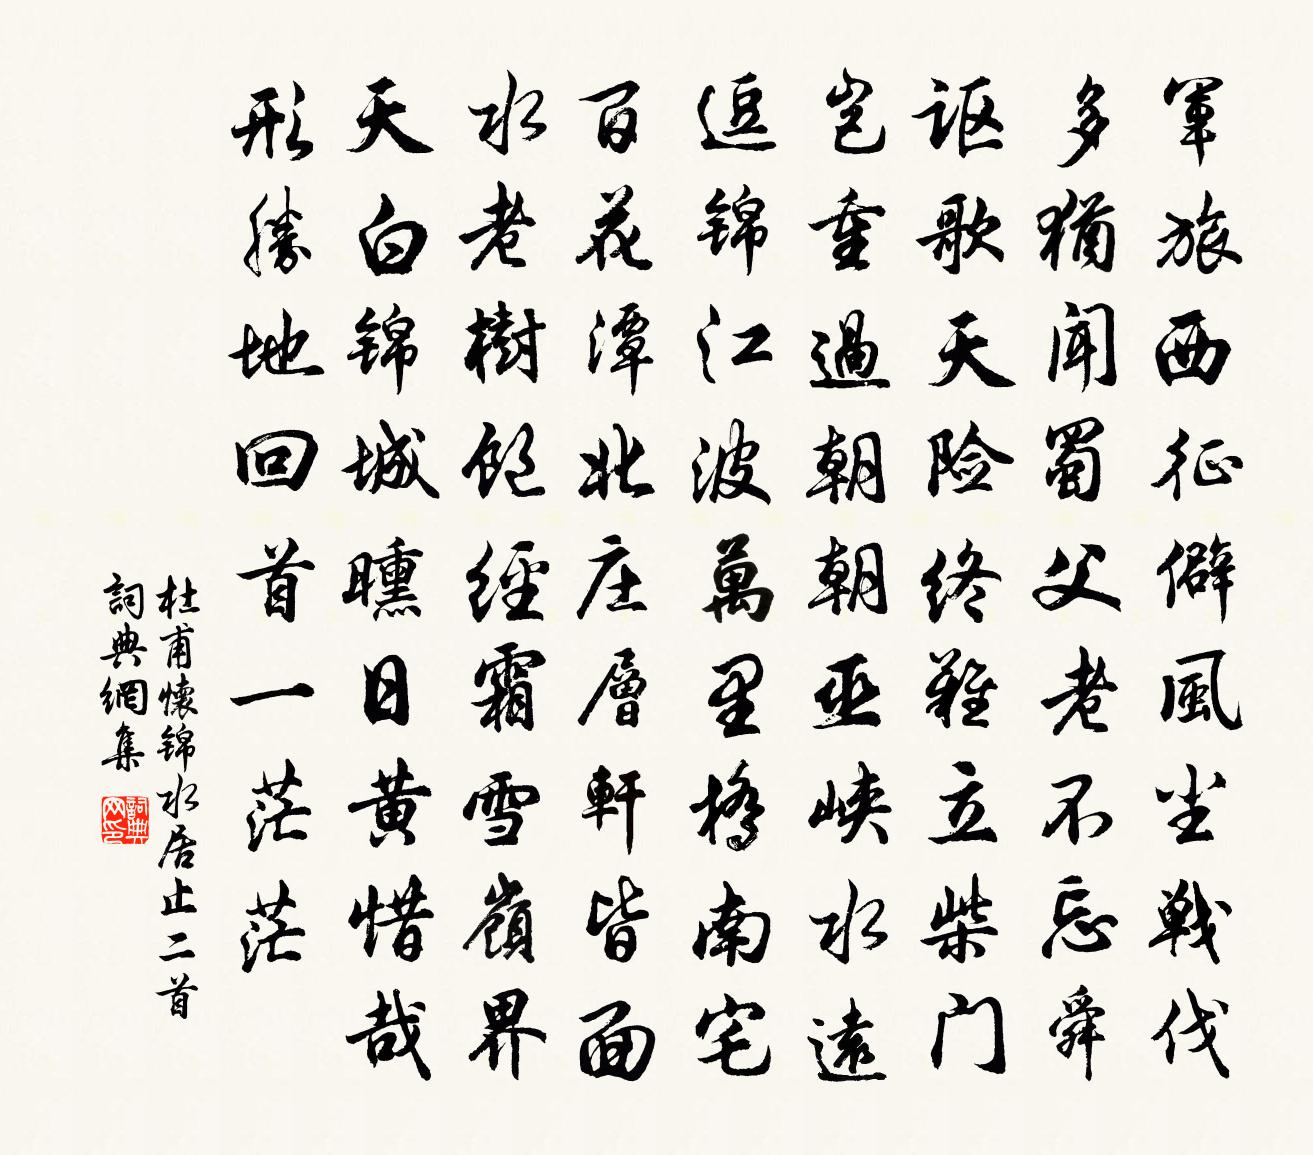 軍旅西征僻風尘戦伐
多猶闻蜀父老不忘舜
讴歌天险终難立柴门
岂重過朝朝巫峡水遠
逗锦江波萬里橋南宅
百花潭北庄層軒皆面
水老樹饱經霜雪嶺界
天白锦城曛日黄惜哉
形勝地回首一茫茫
杜甫懷锦水居止二首
詞典網集
詞典网印